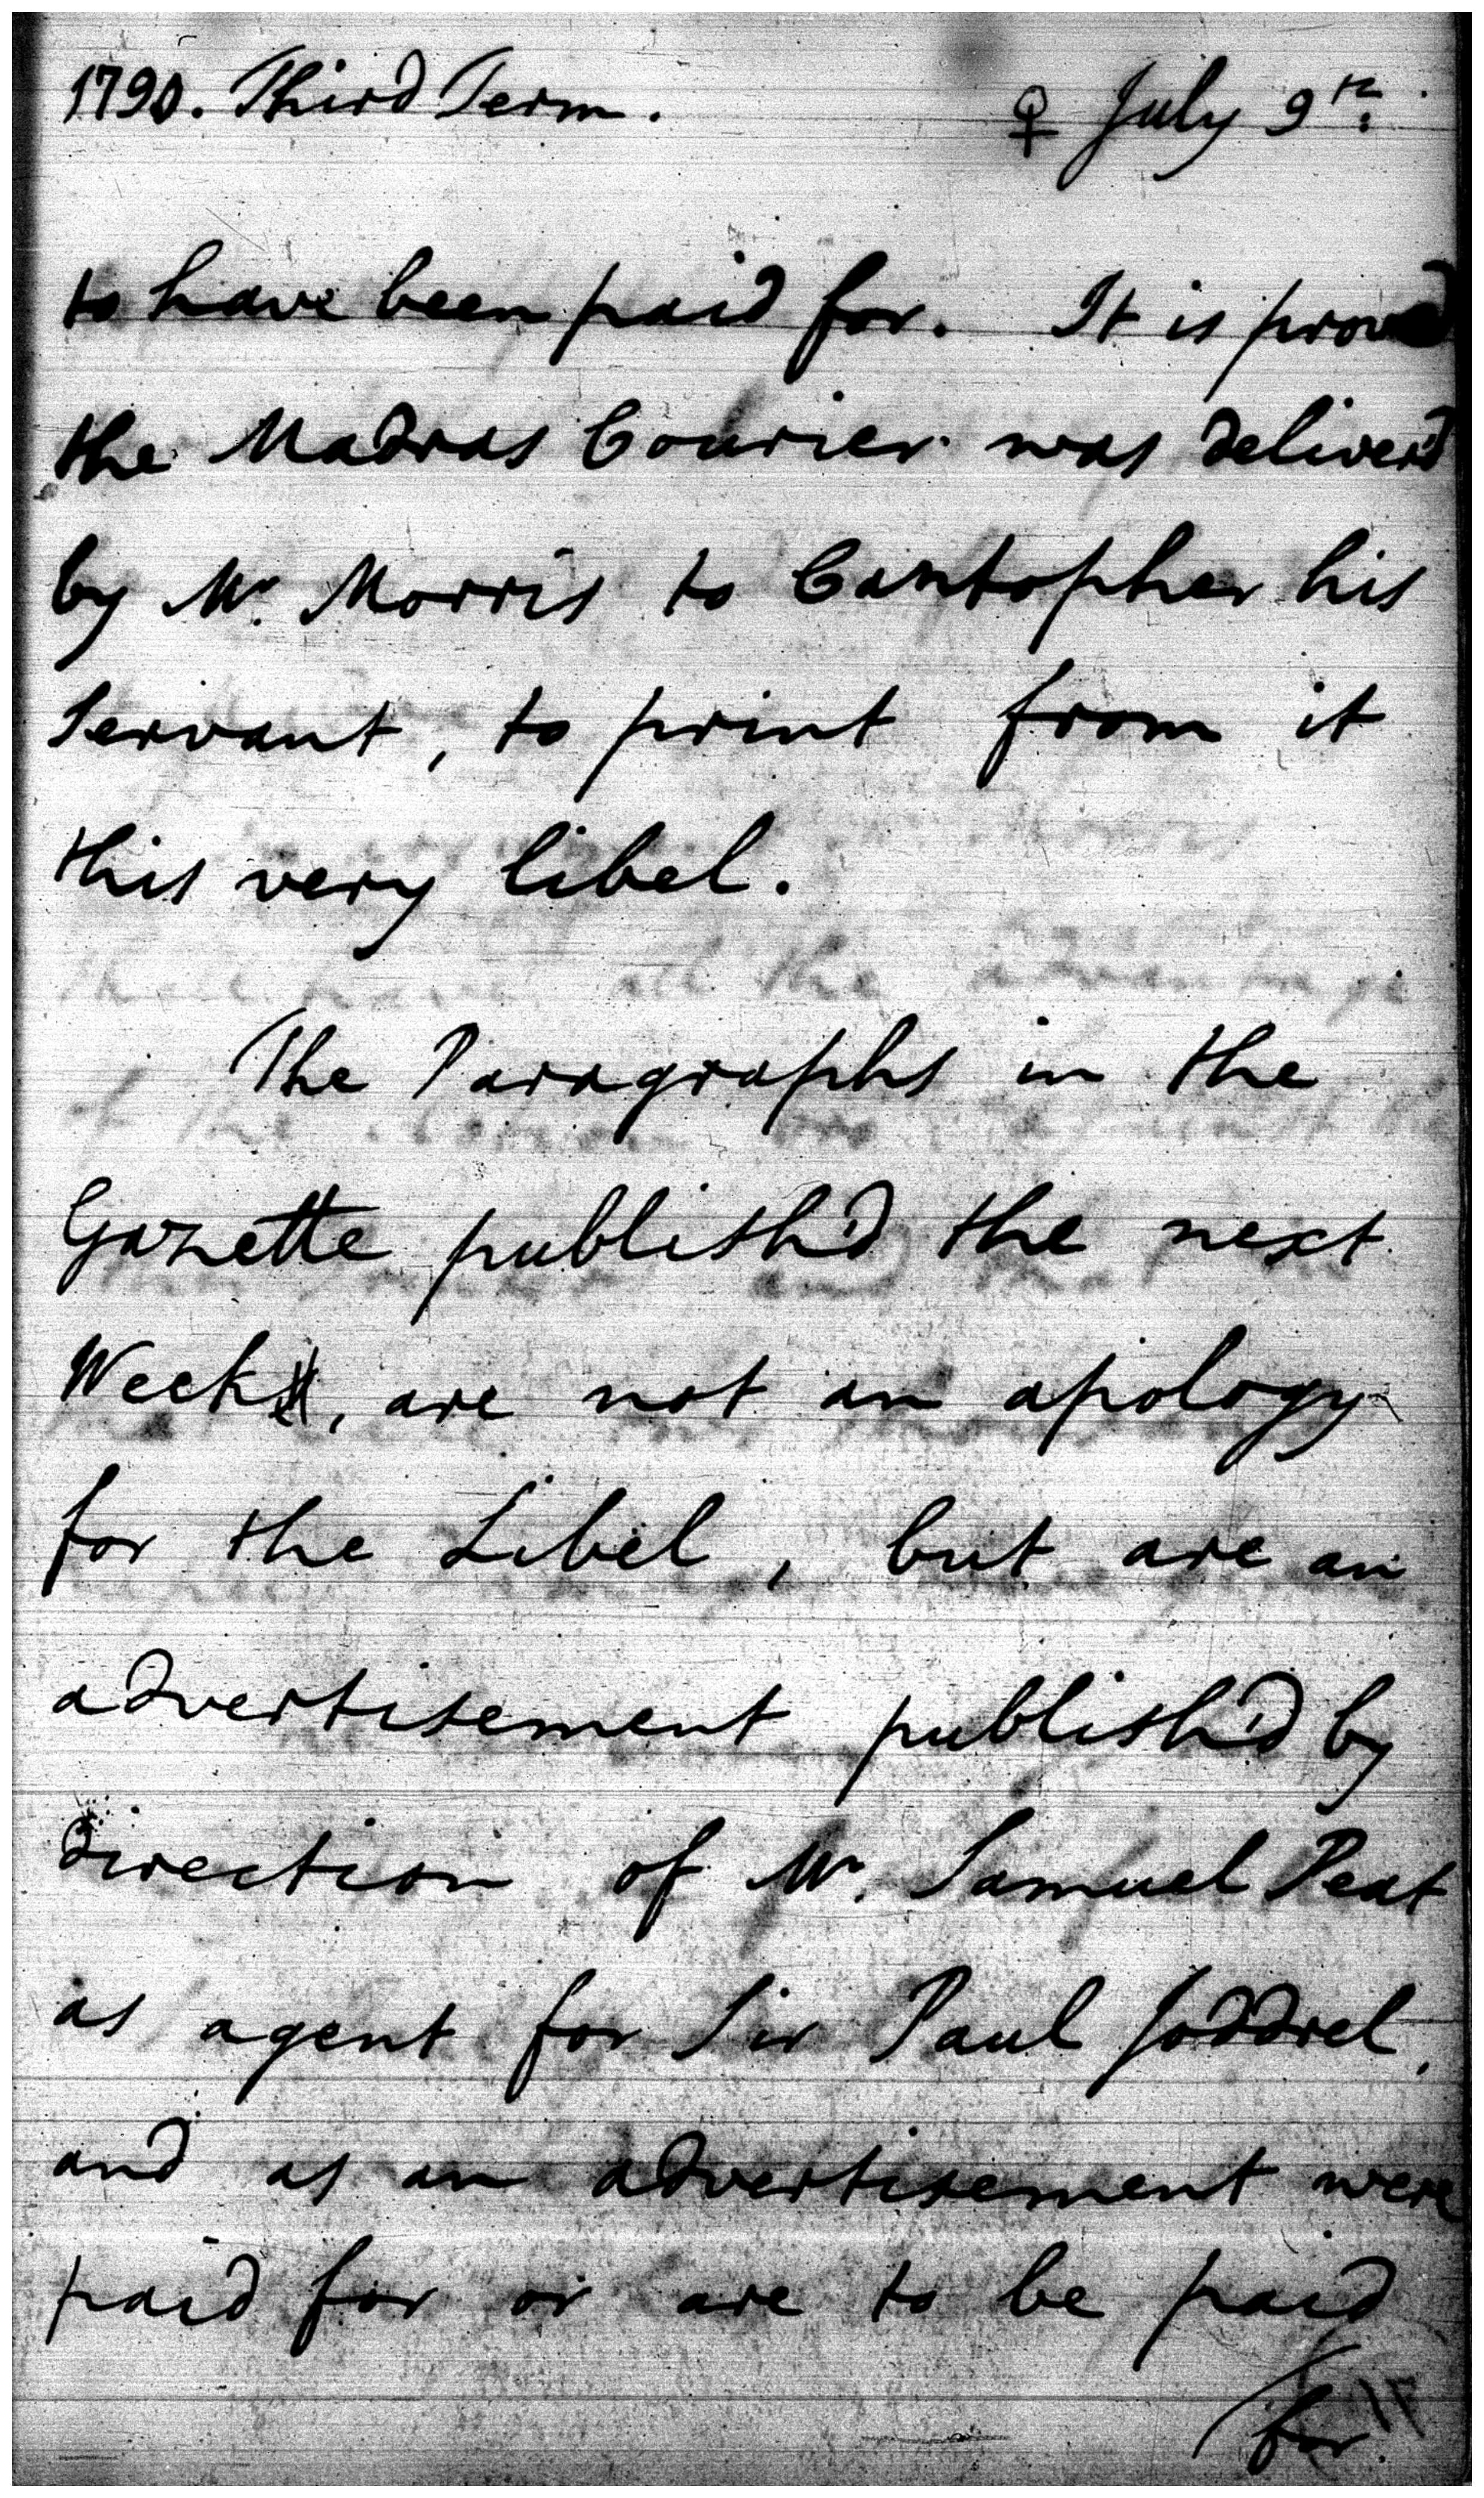 1790. Third Term. ♀ July 9th.
to have been paid for. It is proved
the Madras Courier was deliver'd
by Mr. Morris to Cantopher his
Servant, to print from it
this very libel.
The Paragraphs in the
Gazette publish'd the next
Week, are not an apology
for the Libel, but are an
advertisement publish'd by
direction of Mr. Samuel Peat
as agent for Sir Paul Joddrel,
and as an advertisement were
paid for or are to be paid
for